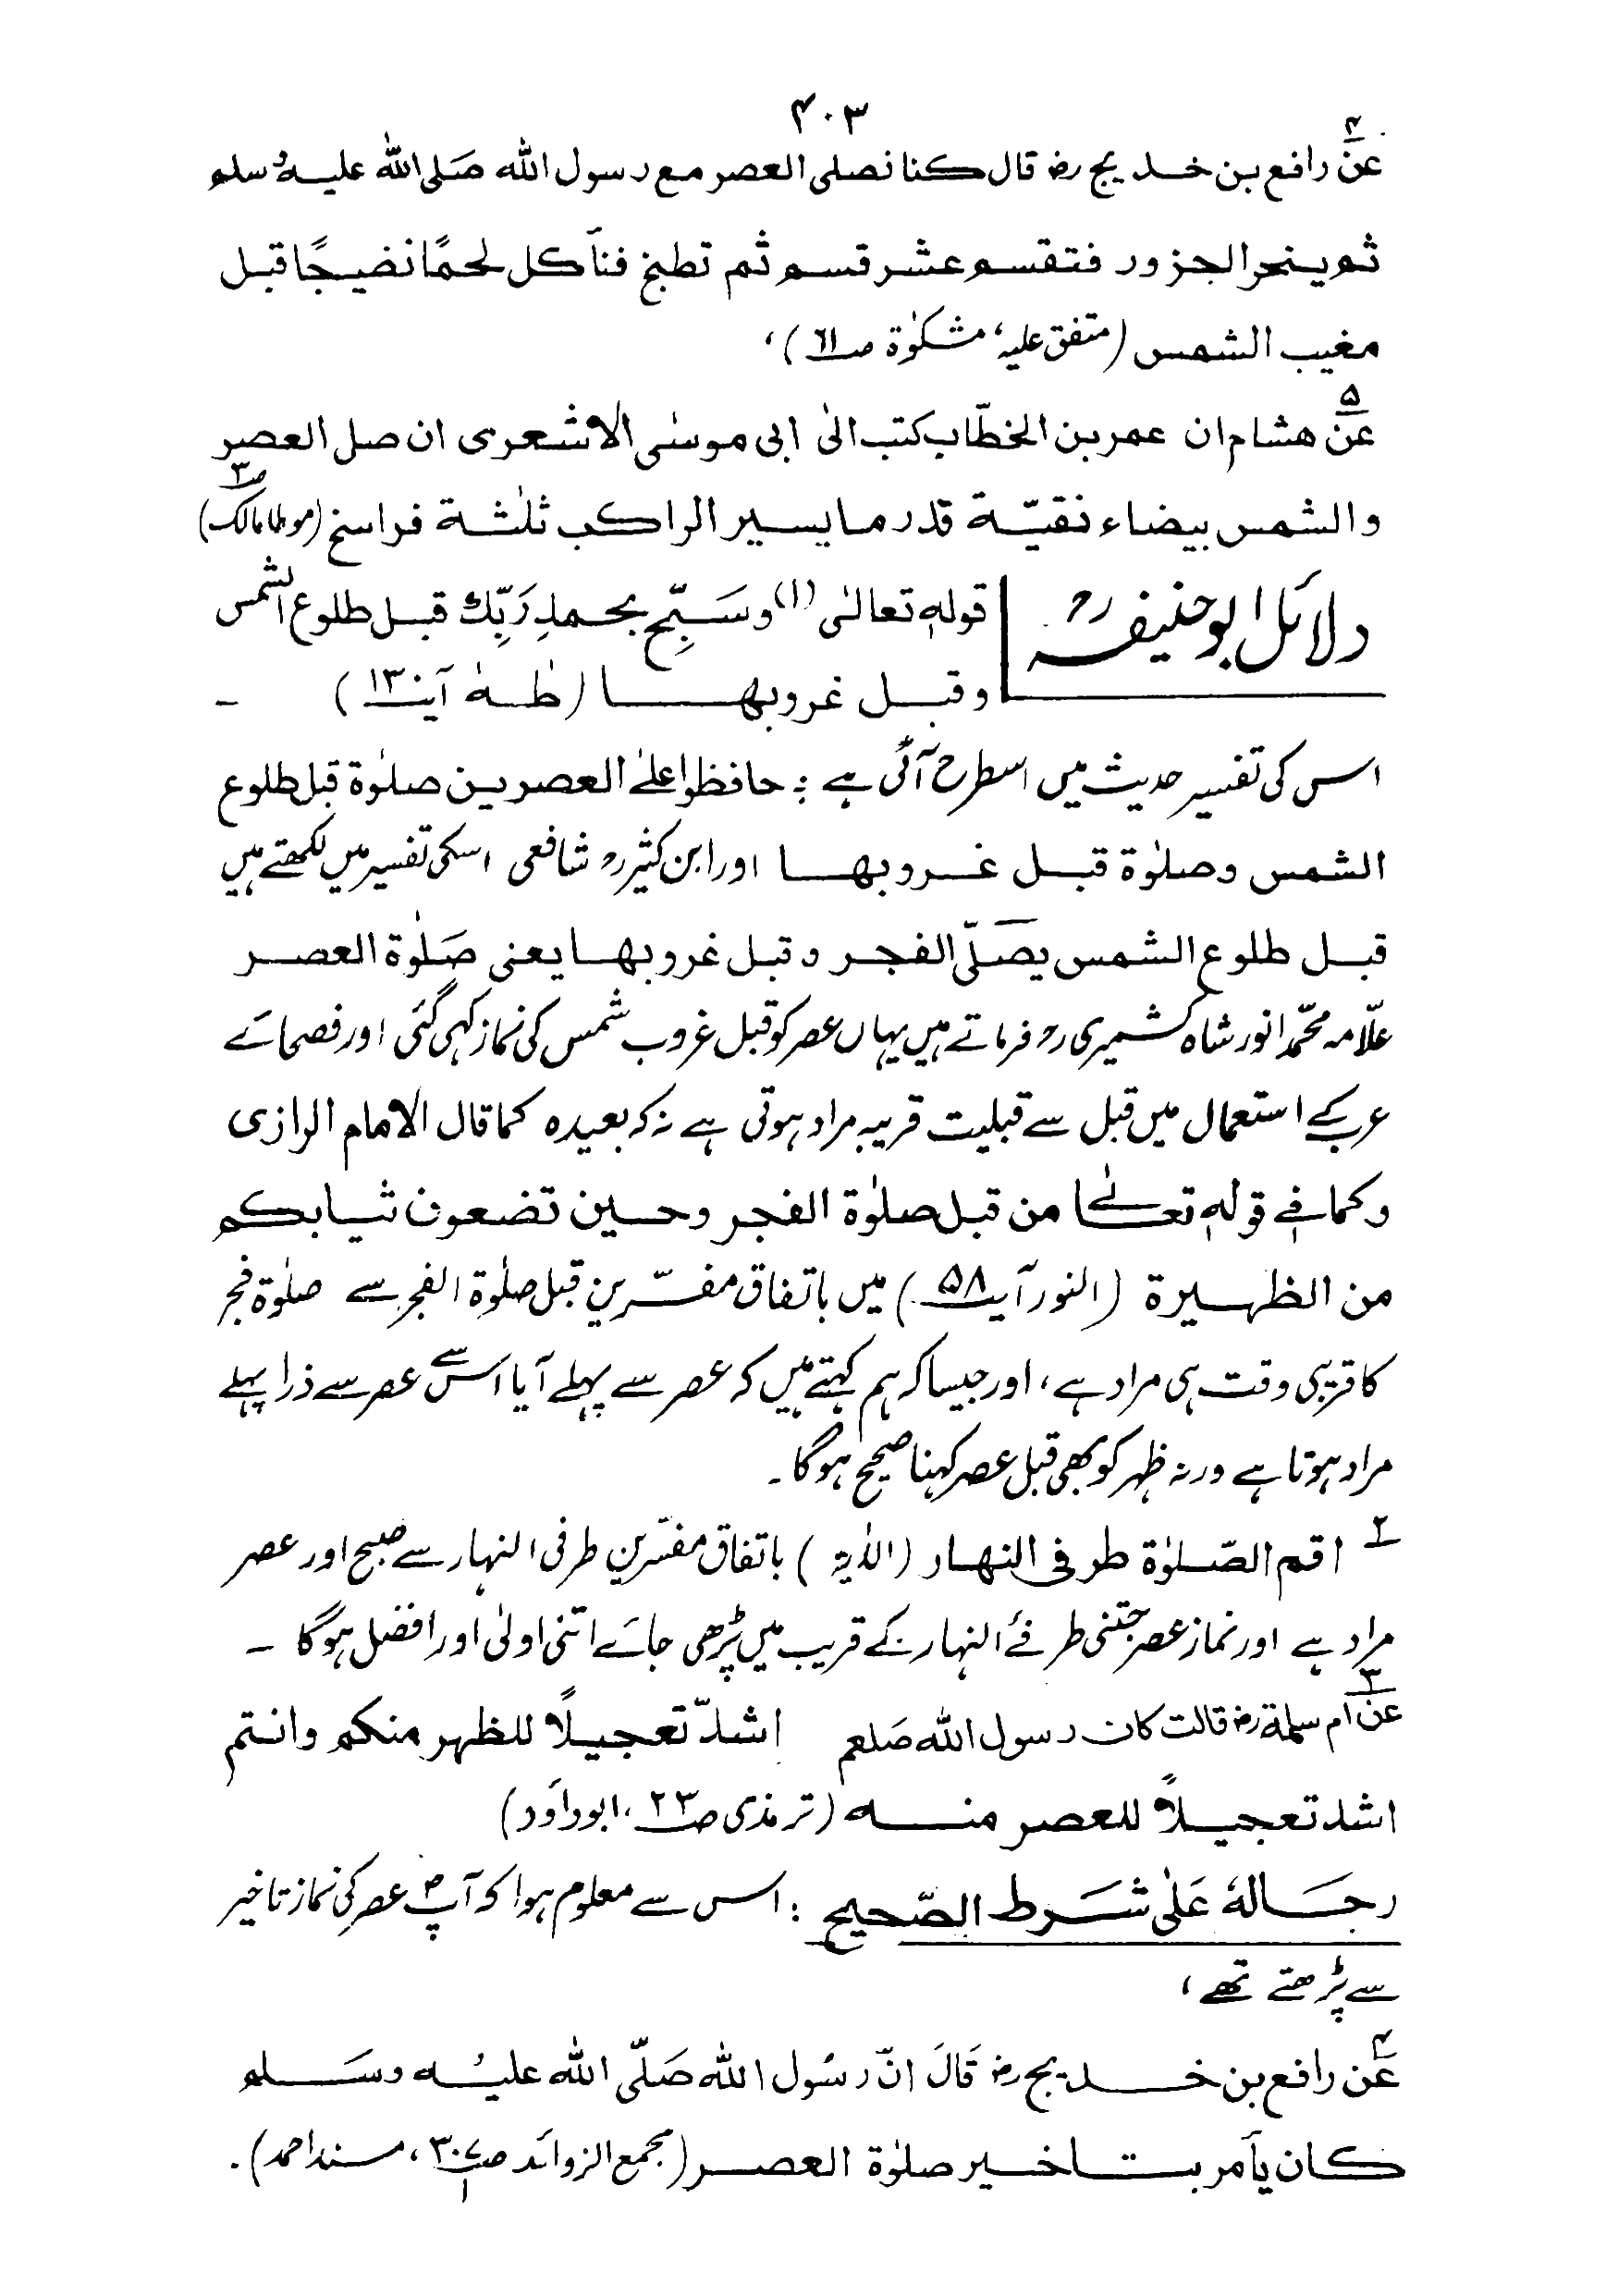 ۴۰۳
۴ عن رافع بن خديج رض قال كنا نصلى العصر مع رسول الله صَلى الله عليه وسلم
ثم ينحر الجزور فتقسم عشر قسم ثم تطبخ فنأكل لحمًا نضيجًا قبل
مغيب الشمس (متفق علیہ، مشکوٰۃ صـ۶۱)،
۵ عن هشام ان عمر بن الخطّاب كتب الىٰ ابى موسٰى الاشعرى ان صل العصر
والشمس بيضاء نقيّة قدر ما يسير الراكب ثلٰثة فراسخ (موطا مالک صـ۳)
دلائل ابو حنیفہ رح
قوله تعالىٰ (۱) وسَبِّح بحمدِ رَبِّك قبل طلوع الشمس
وقبل غروبها (طٰهٰ آیت ۱۳۰) ۔
اس کی تفسیر حدیث میں اسطرح آئی ہے : حافظوا علىٰ العصرين صلوٰة قبل طلوع
الشمس وصلوٰة قبل غروبها اور ابن کثیر رح شافعی اسکی تفسیر میں لکھتے ہیں
قبل طلوع الشمس يصَلّى الفجر وقبل غروبها يعنى صَلوٰة العصر
علّامہ محمّد انور شاہ کشمیری رح فرماتے ہیں یہاں عصر کو قبل غروب شمس کی نماز کہی گئی اور فصحائے
عرب کے استعمال میں قبل سے قبلیت قریبہ مراد ہوتی ہے نہ کہ بعیدہ کما قال الامام الرازی
وکما فی قوله تعالیٰ من قبل صلوٰة الفجر وحين تضعون ثيابكم
من الظهيرة (النور آیت ۵۸) میں باتفاق مفسّرین قبل صلوٰۃ الفجر سے صلوٰۃ فجر
کا قریبی وقت ہی مراد ہے، اور جیسا کہ ہم کہتے ہیں کہ عصر سے پہلے آیا اس سے عصر سے ذرا پہلے
مراد ہوتا ہے ورنہ ظہر کو بھی قبل عصر کہنا صحیح ہوگا۔
۲ اقم الصّلوٰة طرفى النهار (الاٰیۃ) باتفاق مفسّرین طرفی النہار سے صبح اور عصر
مراد ہے اور نماز عصر جتنی طرفے النہار کے قریب میں پڑھی جائے اتنی اولٰی اور افضل ہوگا ۔
۳ عن ام سلمة رض قالت كان رسول الله صَلعم اشدّ تعجيلًا للظهر منكم وانتم
اشد تعجيلًا للعصر منه (ترمذی صـ۲۳، ابوداؤد)
رجَالهٗ عَلىٰ شَرط الصّحيح : اس سے معلوم ہوا کہ آپ ؐ عصر کی نماز تاخیر
سے پڑھتے تھے،
۴ عَن رافع بن خديج رض قَالَ انّ رسُول الله صَلّى الله عليه وسَلم
كان يأمر بتاخير صلوٰة العصر (مجمع الزوائد صـ۳۰۷/۱، مسند احمد)۔